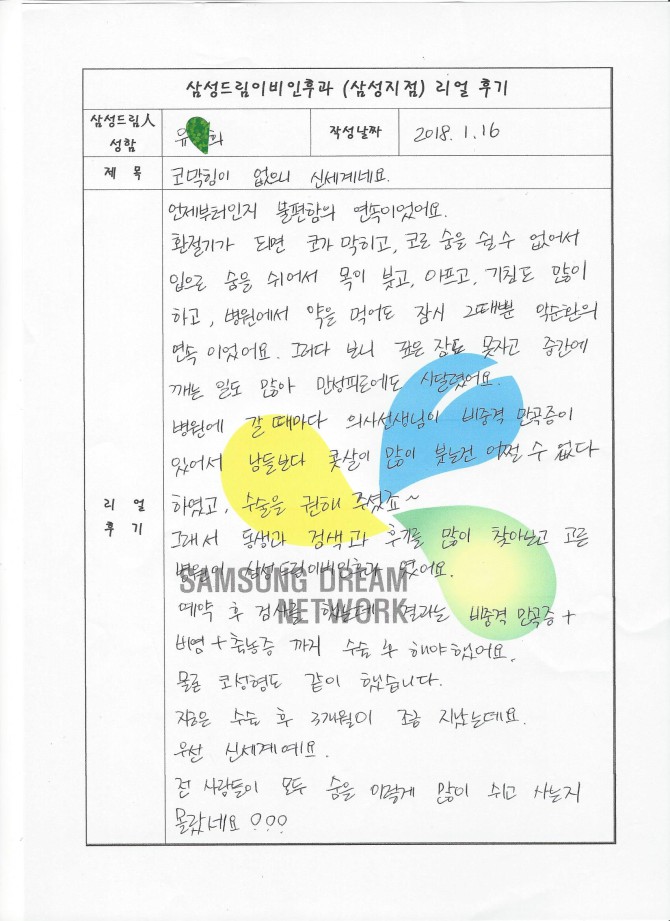 삼성드림이비인후과 (삼성지점) 리얼 후기
삼성드림人 성함
유 희
작성날짜
2018. 1. 16
제 목
코막힘이 없으니 신세계네요.
리 얼 후 기
언제부터인지 불편함의 연속이었어요.
환절기가 되면 코가 막히고, 코로 숨을 쉴 수 없어서
입으로 숨을 쉬어서 목이 붓고, 아프고, 기침도 많이
하고, 병원에서 약을 먹어도 잠시 그때뿐 악순환의
연속 이었어요. 그러다 보니 잠도 못자고 중간에
깨는 일도 많아 만성피로에도 시달렸어요.
병원에 갈 때마다 의사선생님이 비중격 만곡증이
있어서 남들보다 콧살이 많이 붓는건 어쩔 수 없다
하였고, 수술을 권해 주셨죠~
그래서 동생과 검색과 후기를 많이 찾아보고 고른
병원이 삼성드림이비인후과 였어요.
SAMSUNG DREAM
NETWORK
예약 후 검사를 했는데 결과는 비중격 만곡증 +
비염 + 축농증 까지 수술 후 해야했어요.
물론 코성형도 같이 했습니다.
지금은 수술 후 3개월이 조금 지났는데요.
우선 신세계예요.
전 사람들이 모두 숨을 이렇게 많이 쉬고 사는지
몰랐네요 ???